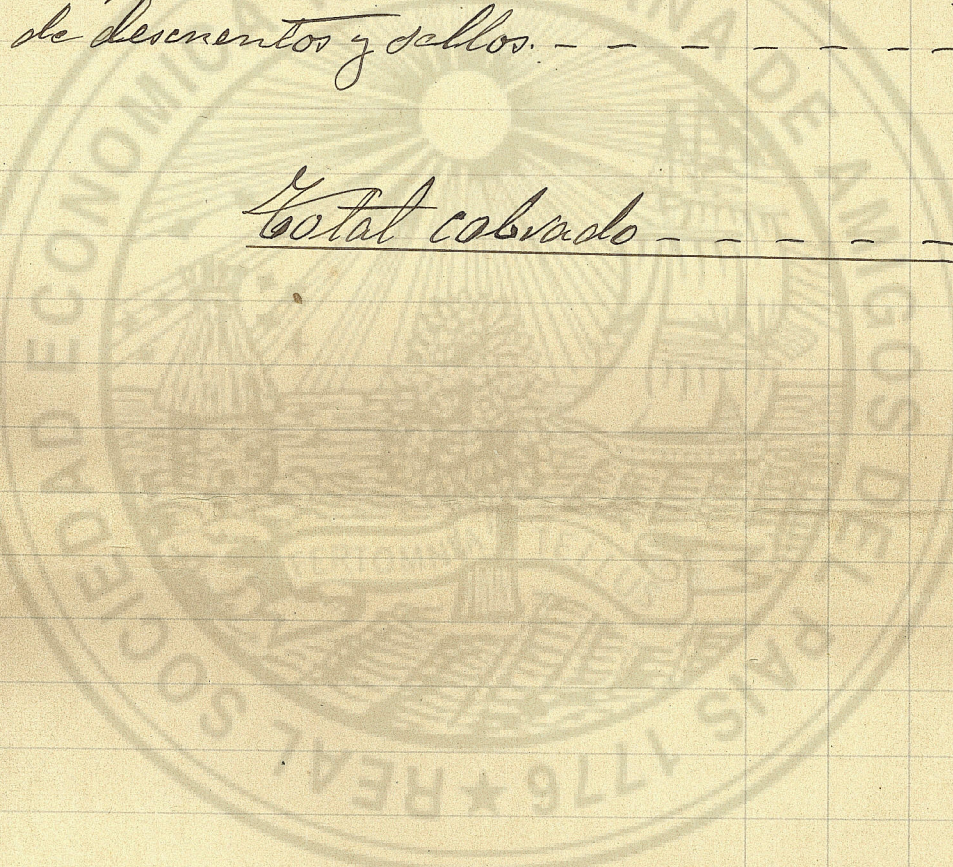 de descuentos y sellos. - - - - - -
Total cobrado - - - - -
REAL SOCIEDAD ECONOMICA NA DE AMIGOS DEL PAIS 1776 ★
FERT OMNIA